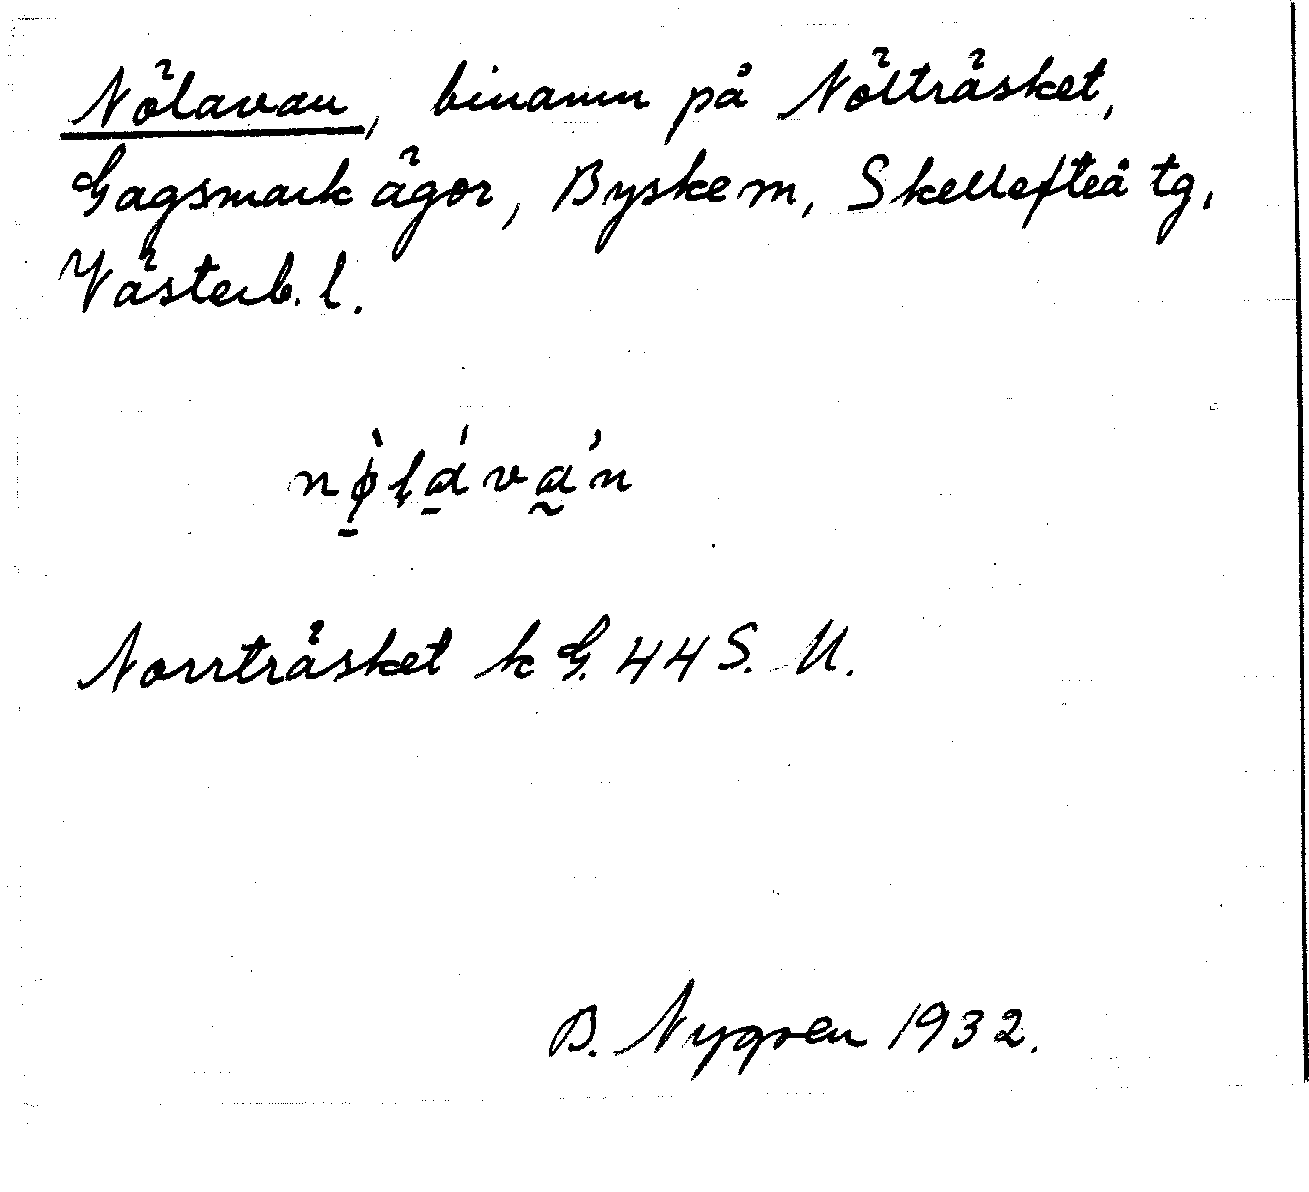 Nölavan, binamn på Nölträsket,
Gagsmark ägor, Byske m, Skellefteå tg.
Västerb. l.
nø̱̀la̱̍va̰̍n
Norrträsket k G. 44 S. U.
B. Nygren 1932.